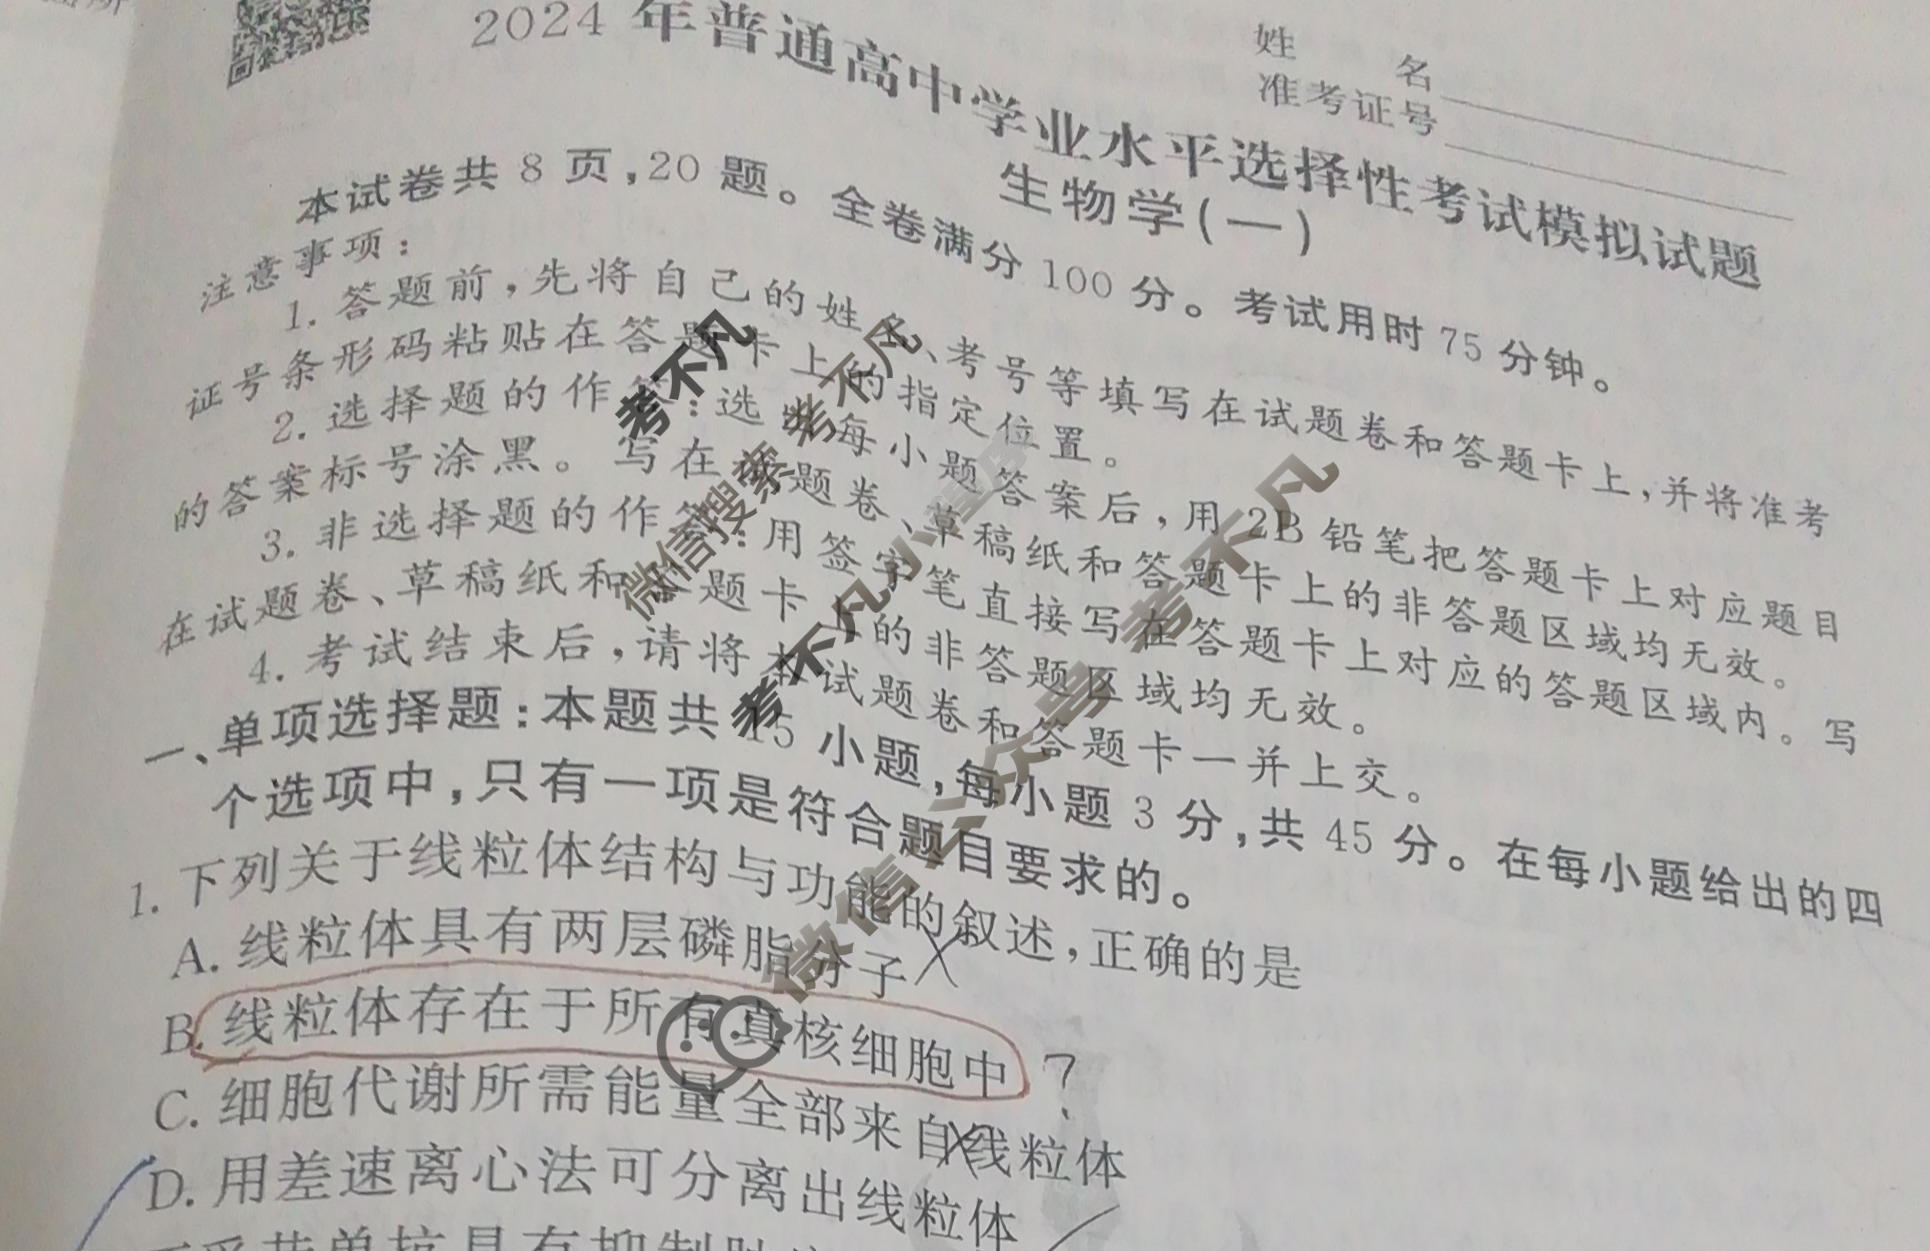 姓 名
准考证号
2024 年普通高中学业水平选择性考试模拟试题
生物学(一)
本试卷共 8 页,20 题。全卷满分 100 分。考试用时 75 分钟。
注意事项:
1. 答题前,先将自己的姓名、考号等填写在试题卷和答题卡上,并将准考
证号条形码粘贴在答题卡上的指定位置。
2. 选择题的作答:选出每小题答案后,用 2B 铅笔把答题卡上对应题目
的答案标号涂黑。写在试题卷、草稿纸和答题卡上的非答题区域均无效。
3. 非选择题的作答:用签字笔直接写在答题卡上对应的答题区域内。写
在试题卷、草稿纸和答题卡上的非答题区域均无效。
4. 考试结束后,请将本试题卷和答题卡一并上交。
一、单项选择题:本题共 15 小题,每小题 3 分,共 45 分。在每小题给出的四
个选项中,只有一项是符合题目要求的。
1. 下列关于线粒体结构与功能的叙述,正确的是
A. 线粒体具有两层磷脂分子
B. 线粒体存在于所有真核细胞中 ?
C. 细胞代谢所需能量全部来自线粒体
D. 用差速离心法可分离出线粒体
考不凡
微信搜索 考不凡
考不凡小程序
微信公众号 考不凡